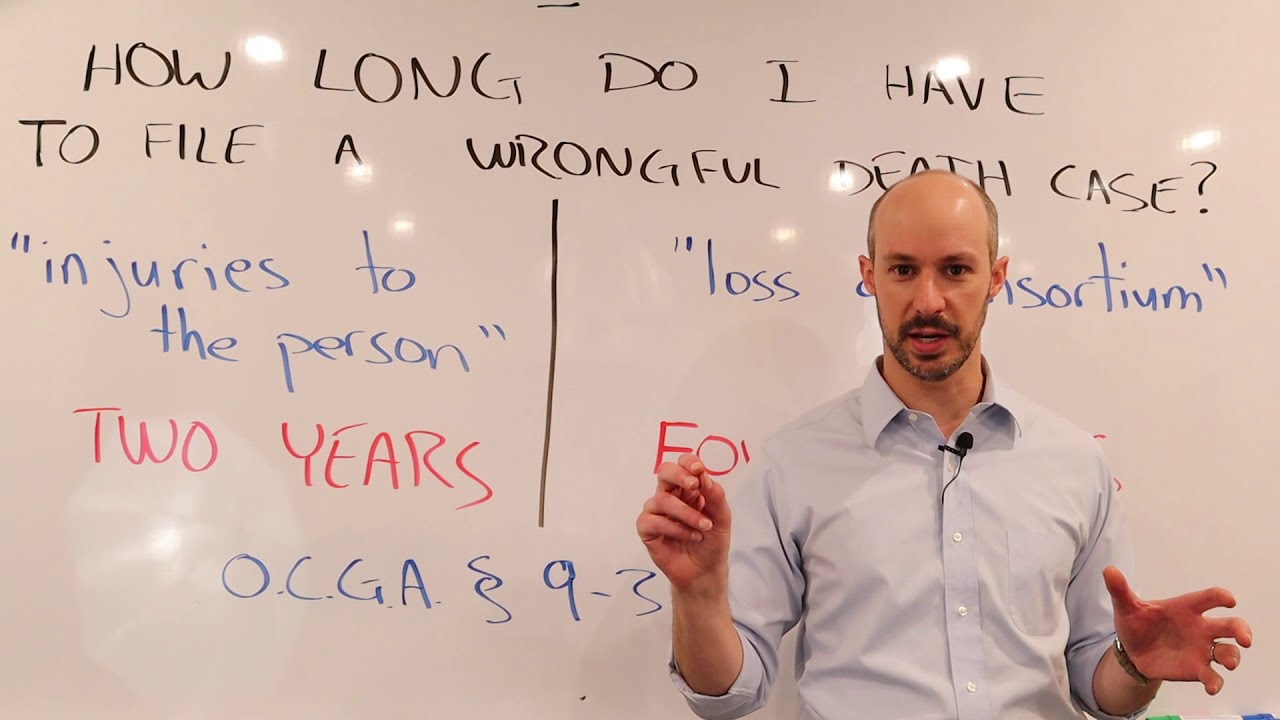 HOW LONG DO I HAVE
TO FILE A WRONGFUL DEATH CASE?
"injuries to
the person"
TWO YEARS
"loss
O.C.G.A. § 9-3